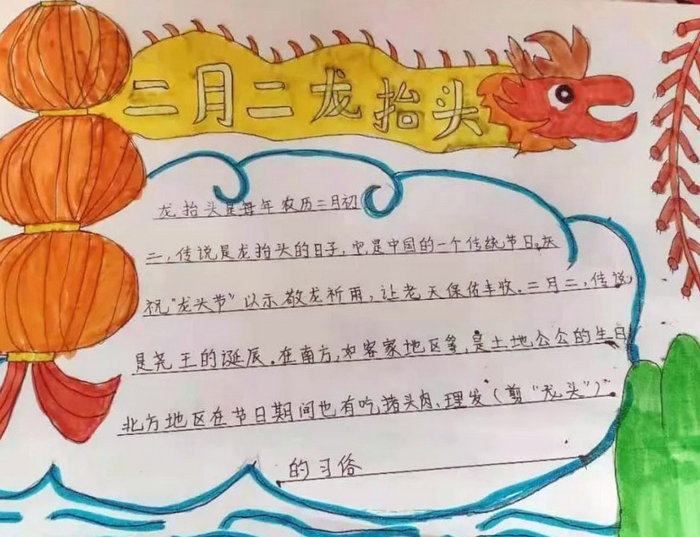 二月二龙抬头
龙抬头是每年农历二月初
二,传说是龙抬头的日子,它是中国的一个传统节日。庆
祝"龙头节"以示敬龙祈雨,让老天保佑丰收。二月二,传说
是尧王的诞辰。在南方,如客家地区等,是土地公公的生日
北方地区在节日期间也有吃猪头肉、理发(剪"龙头")
的习俗